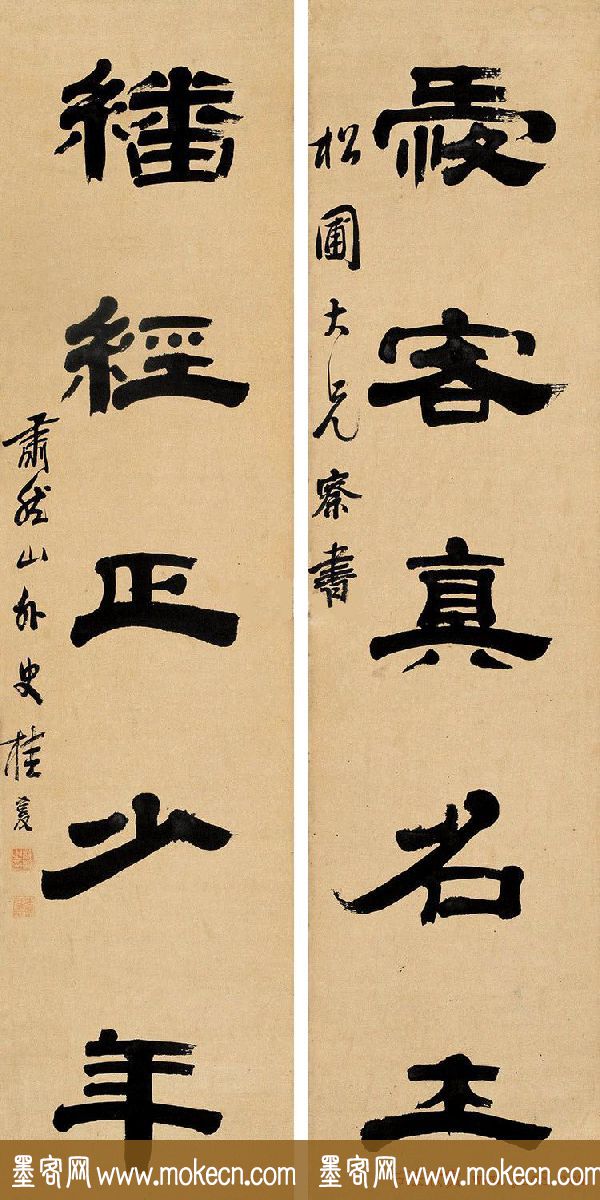 愛客真名士
松圃大兄察書
繙經正少年
肅然山外史桂馥
墨客网 www.mokecn.com
墨客网 www.mokecn.com